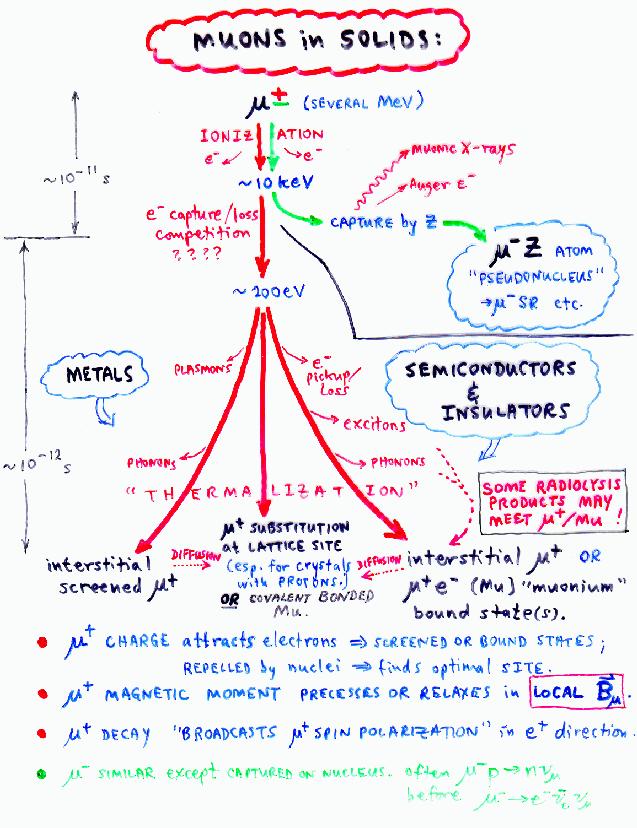 MUONS in SOLIDS:
μ± (SEVERAL MeV)
IONIZ ATION
e⁻ e⁻
~10⁻¹¹ s
~10 keV
MUONIC X-rays
Auger e⁻
e⁻ capture/loss
competition
????
CAPTURE by Z
μ⁻Z ATOM
"PSEUDONUCLEUS"
→μ⁻SR etc.
~200eV
METALS
PLASMONS
e⁻
pickup/
Loss
SEMICONDUCTORS
&
INSULATORS
excitons
~10⁻¹² s
PHONONS
PHONONS
"THERMALIZATION"
SOME RADIOLYSIS
PRODUCTS MAY
MEET μ⁺/Mu !
interstitial
screened μ⁺
DIFFUSION
μ⁺ SUBSTITUTION
at LATTICE SITE
(esp. for crystals
with PROTONS.)
OR COVALENT BONDED
Mu.
DIFFUSION
interstitial μ⁺ OR
μ⁺e⁻ (Mu) "muonium"
bound state(s).
• μ⁺ CHARGE attracts electrons ⇒ SCREENED OR BOUND STATES;
REPELLED by nuclei ⇒ finds optimal SITE.
• μ⁺ MAGNETIC MOMENT PRECESSES OR RELAXES in LOCAL B⃗μ.
• μ⁺ DECAY "BROADCASTS μ⁺ SPIN POLARIZATION" in e⁺ direction.
• μ⁻ SIMILAR EXCEPT CAPTURED ON NUCLEUS. often μ⁻p→nνμ
before μ⁻→e⁻ν̄eνμ